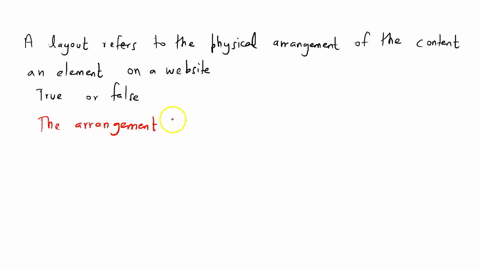 A layout refers to the physical arrangement of the content
an element on a website
True or false
The arrangement